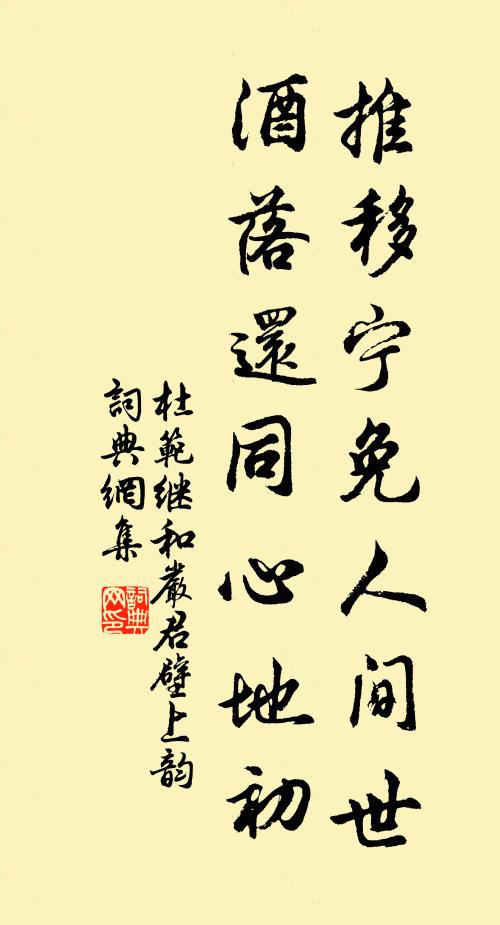 推移宁免人间世
酒落還同心地初
杜範继和嚴君壁上韵
詞典網集
詞典
网印